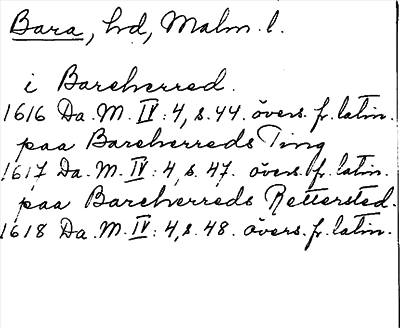 Bara, hd, Malm. l.
i Bareherred.
1616 Da. M. IV: 4, s. 44. övers. fr. latin.
paa Bareherreds Ting
1617 Da. M. IV: 4, s. 47. övers. fr. latin.
paa Bareherreds Rettersted.
1618 Da. M. IV: 4, s. 48. övers. fr. latin.